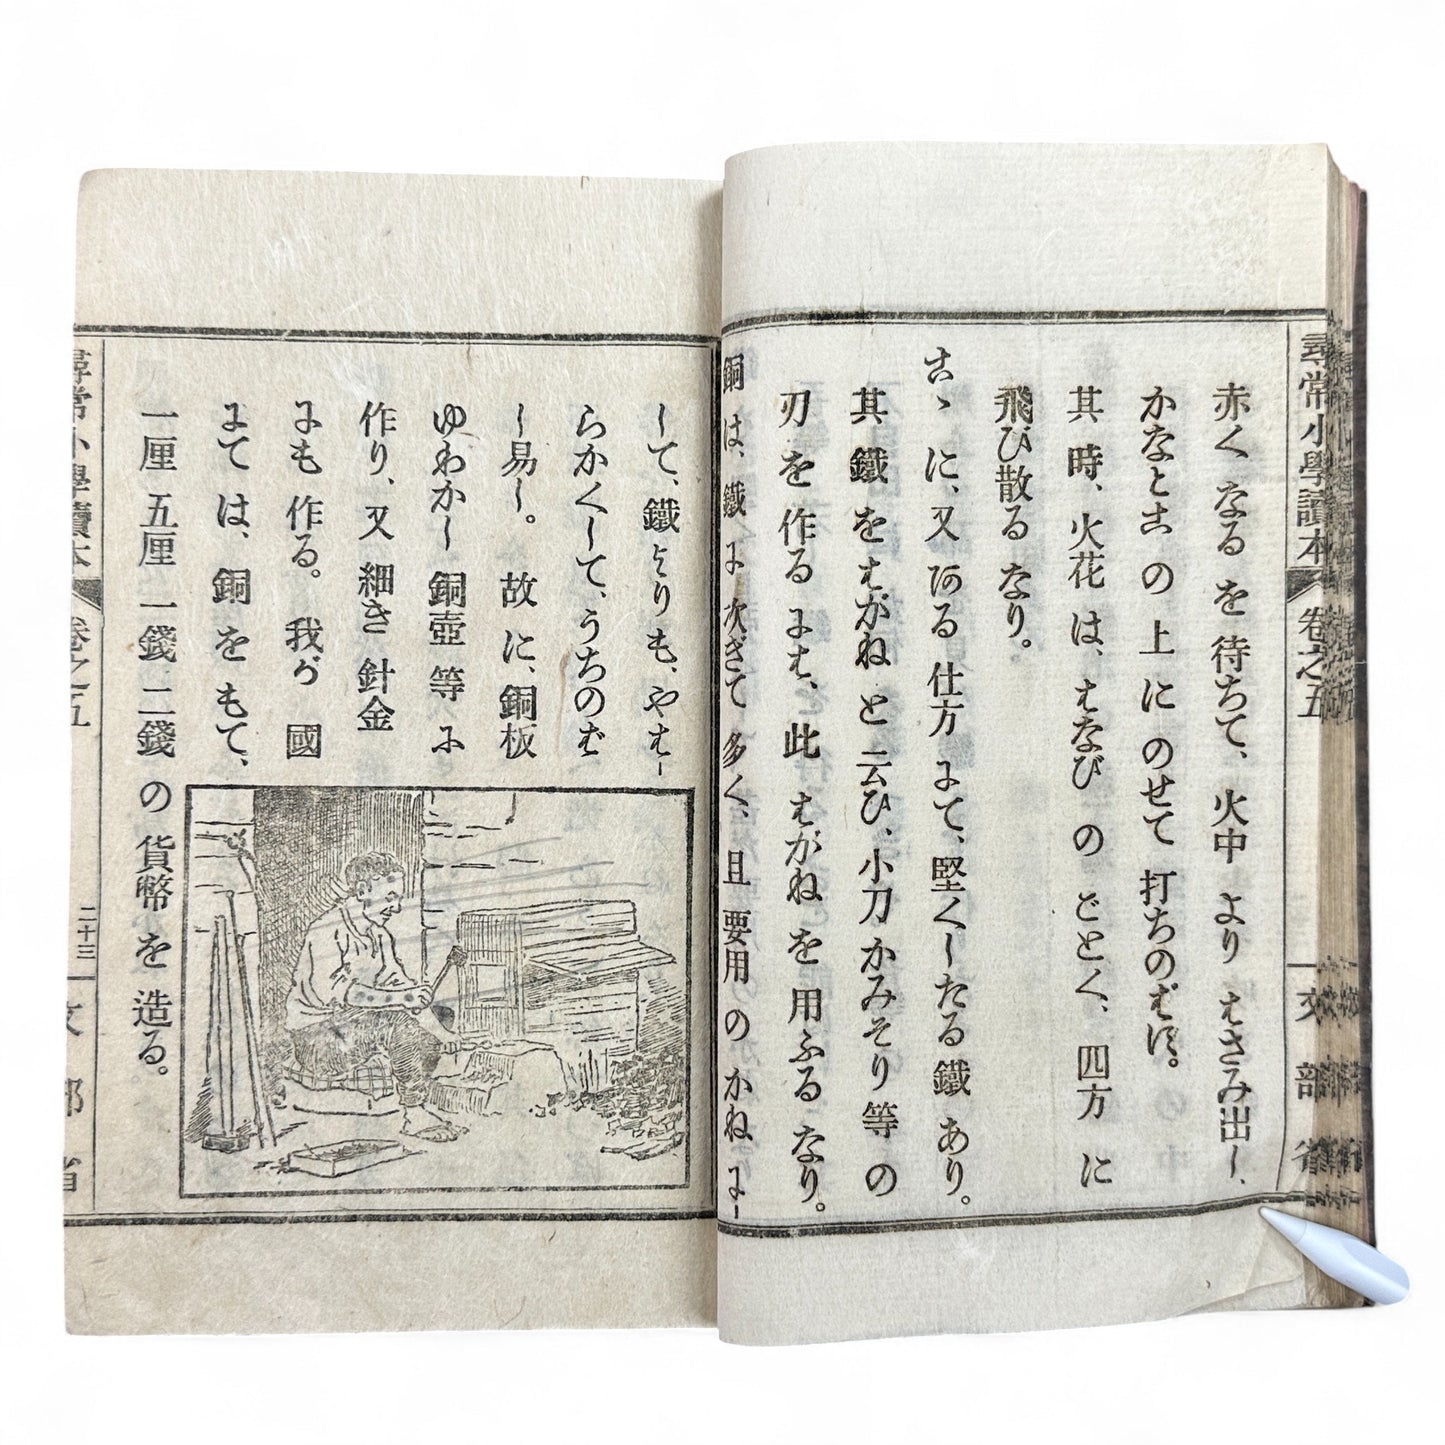 尋常小學讀本 卷之五 文部省
赤くなるを待ちて、火中よりはさみ出し、
かなとこの上にのせて打ちのばす。
其時、火花は、はなびのごとく、四方に
飛び散るなり。
こゝに、又ある仕方にて、堅くしたる鐵あり。
其鐵をはがねと云ひ、小刀かみそり等の
刃を作るには、此はがねを用ふるなり。
銅は、鐵に次ぎて多く、且要用のかねにし
して、鐵よりも、やはし
らかくして、うちのば
し易し。故に、銅板
ゆわかし銅壺等に
作り、又細き針金
にも作る。我が國
にては、銅をもて、
一厘五厘一錢二錢の貨幣を造る。
尋常小學讀本 卷之五 二十三 文部省